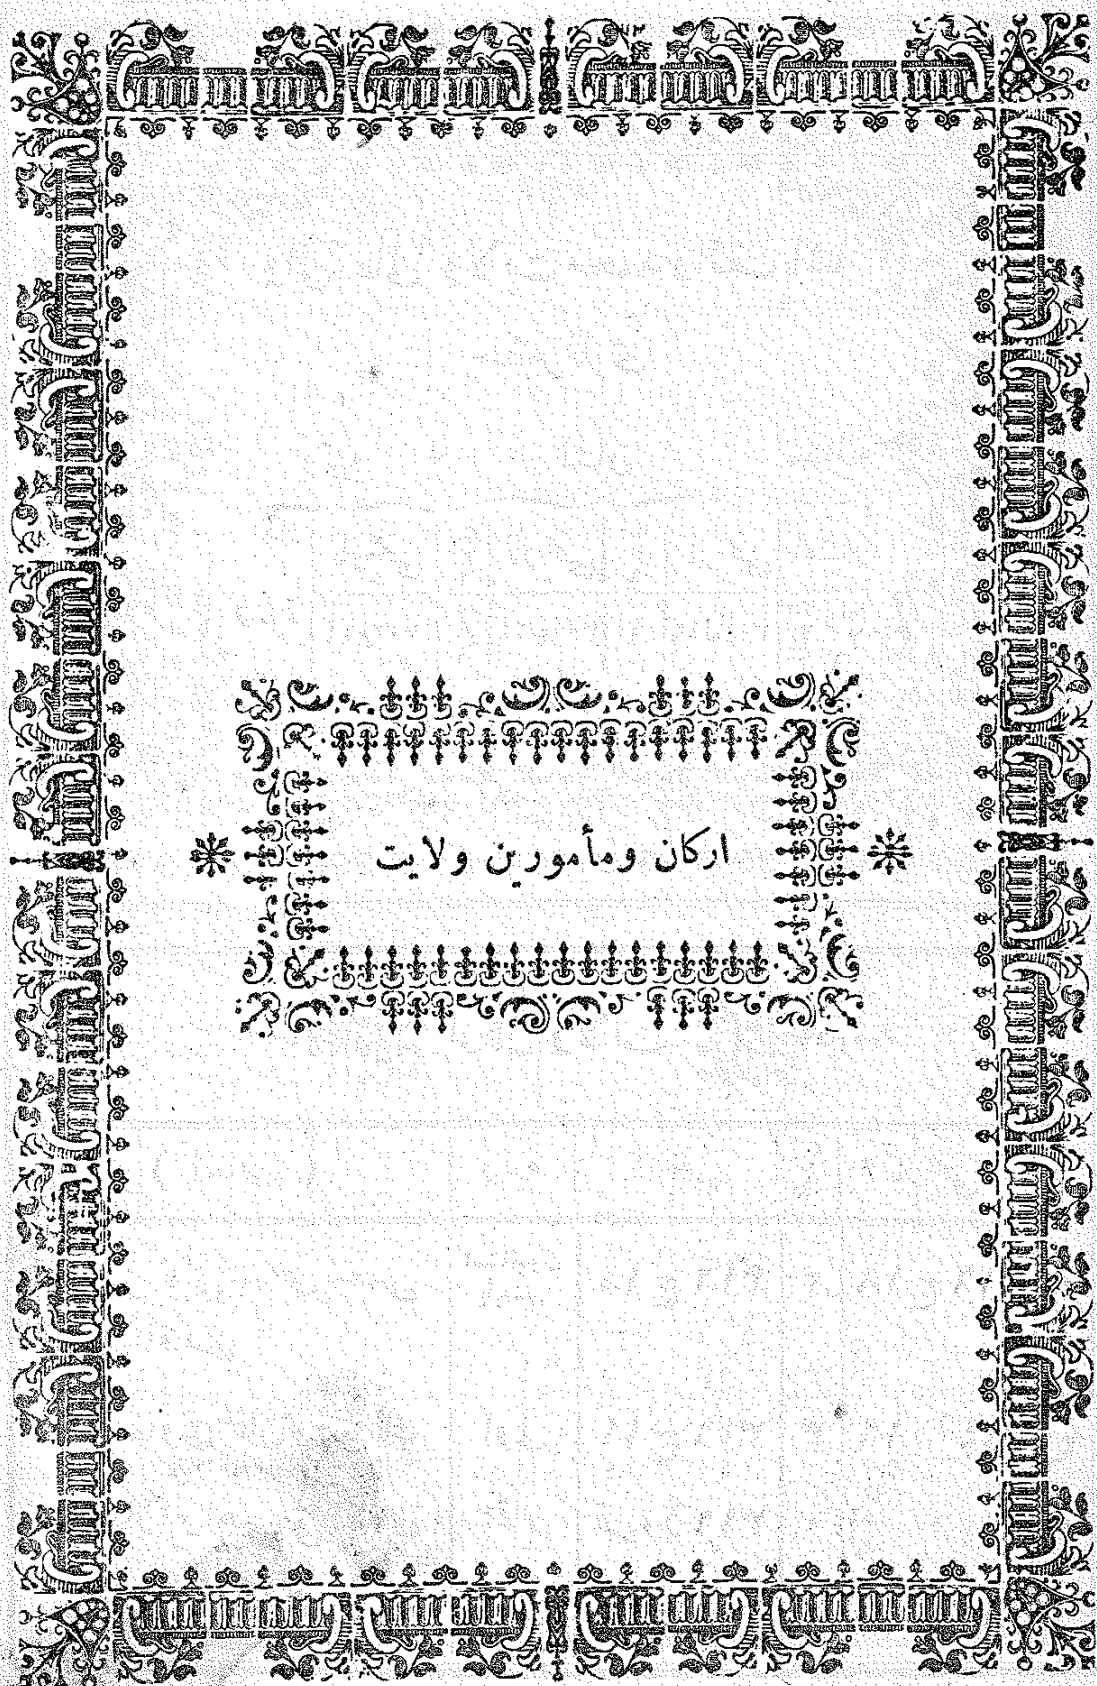 اركان ومأمورین ولايت